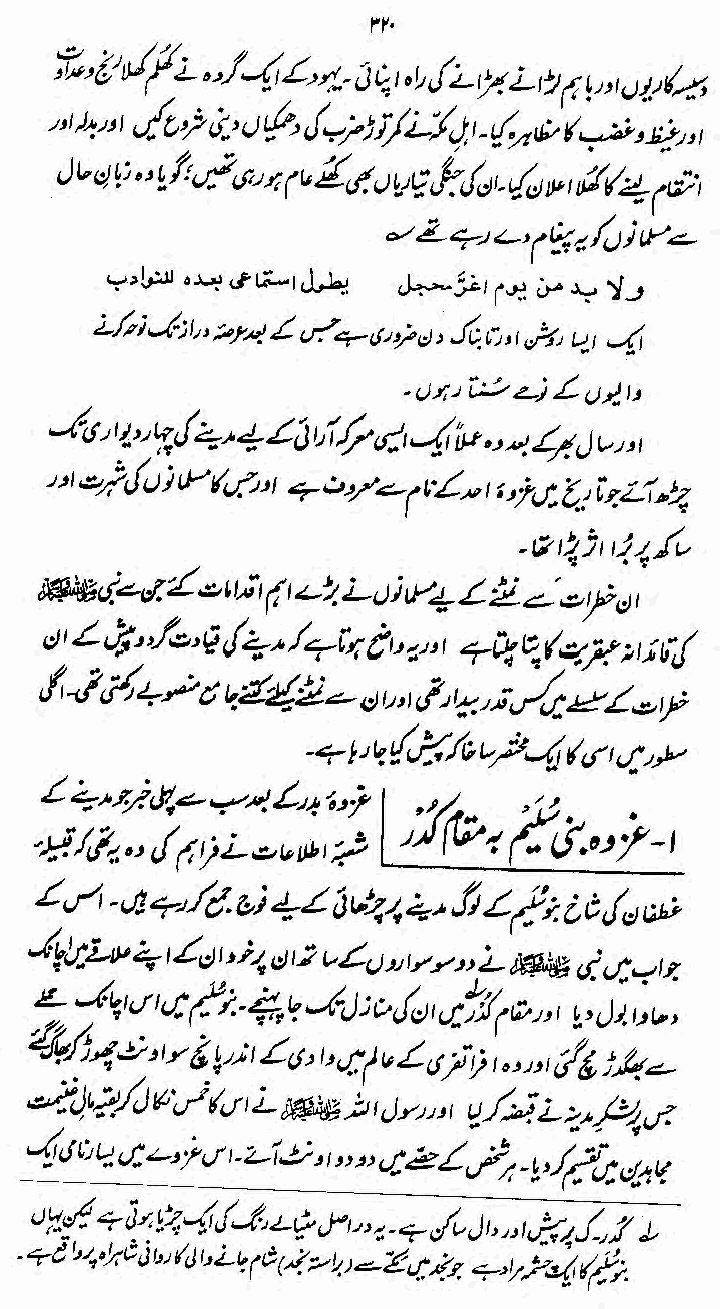 ۳۲۰
دسیسہ کاریوں اور باہم لڑانے بھڑانے کی راہ اپنائی۔ یہود کے ایک گروہ نے کھُلم کھلا رنج و عداوت
اور غیظ و غضب کا مظاہرہ کیا۔ اہلِ مکّہ نے کمر توڑ ضرب کی دھمکیاں دینی شروع کیں اور بدلہ اور
انتقام لینے کا کھُلا اعلان کیا۔ ان کی جنگی تیاریاں بھی کھُلے عام ہو رہی تھیں؛ گویا وہ زبانِ حال
سے مسلمانوں کو یہ پیغام دے رہے تھے ؎
ولا بد من یوم اغرّ محجل یطول استماعی بعدہ للنوادب
ایک ایسا روشن اور تابناک دن ضروری ہے جس کے بعد عرصۂ دراز تک نوحہ کرنے
والیوں کے نوحے سُنتا رہوں۔
اور سال بھر کے بعد وہ عملاً ایک ایسی معرکہ آرائی کے لیے مدینے کی چہار دیواری تک
چڑھ آئے جو تاریخ میں غزوۂ احد کے نام سے معروف ہے اور جس کا مسلمانوں کی شہرت اور
ساکھ پر بُرا اثر پڑا تھا۔
ان خطرات سے نمٹنے کے لیے مسلمانوں نے بڑے اہم اقدامات کئے جن سے نبی ﷺ
کی قائدانہ عبقریت کا پتا چلتا ہے اور یہ واضح ہوتا ہے کہ مدینے کی قیادت گرد و پیش کے ان
خطرات کے سلسلے میں کس قدر بیدار تھی اور ان سے نمٹنے کیلئے کتنے جامع منصوبے رکھتی تھی۔ اگلی
سطور میں اسی کا ایک مختصر سا خاکہ پیش کیا جا رہا ہے۔
۱۔ غزوہ بنی سُلَیم بہ مقام کُدْر
غزوۂ بدر کے بعد سب سے پہلی خبر جو مدینے کے
شعبۂ اطلاعات نے فراہم کی وہ یہ تھی کہ قبیلۂ
غطفان کی شاخ بنو سُلَیم کے لوگ مدینے پر چڑھائی کے لیے فوج جمع کر رہے ہیں۔ اس کے
جواب میں نبی ﷺ نے دو سو سواروں کے ساتھ ان پر خود ان کے اپنے علاقے میں اچانک
دھاوا بول دیا اور مقام کُدْر لہ میں ان کی منازل تک جا پہنچے۔ بنو سُلَیم میں اس اچانک حملے
سے بھگدڑ مچ گئی اور وہ افراتفری کے عالم میں وادی کے اندر پانچ سو اونٹ چھوڑ کر بھاگ گئے
جس پر لشکرِ مدینہ نے قبضہ کر لیا اور رسول اللہ ﷺ نے اس کا خمس نکال کر بقیہ مالِ غنیمت
مجاہدین میں تقسیم کر دیا۔ ہر شخص کے حصّے میں دو دو اونٹ آئے۔ اس غزوے میں یسار نامی ایک
لہ کُدْر۔ ک پر پیش اور دال ساکن ہے۔ یہ دراصل مٹیالے رنگ کی ایک چڑیا ہوتی ہے لیکن یہاں
بنو سُلَیم کا ایک چشمہ مراد ہے جو نجد میں مکّے سے (براستہ نجد) شام جانے والی کاروانی شاہراہ پر واقع ہے۔